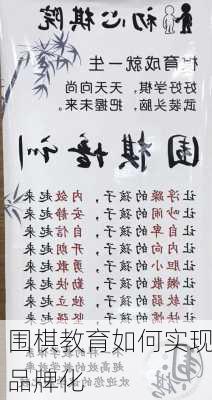 初心棋院
棋育成就一生
好好学棋 天天向尚
武装头脑 把握未来
围棋培训
让浮躁的孩子，内敛起来
让吵闹的孩子，安静起来
让自卑的孩子，自信起来
让内向的孩子，开朗起来
让胆小的孩子，勇敢起来
让懒散的孩子，勤快起来
让软弱的孩子，独立起来
围棋教育如何实现
品牌化